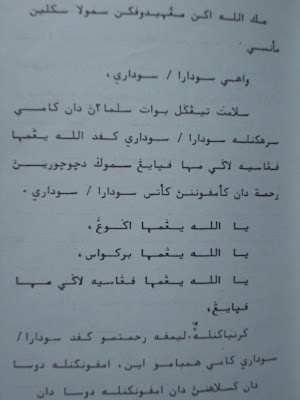 مك الله اكن مڠهيدوڤكن سمولا سكلين
مأنسي.
واهي سودارا / سوداري،
سلامت تيڠݢل بوات سلمأن دان كامي
سرهكنله سودارا / سوداري كڤد الله يڠمها
ڤڠاسيه لاݢي مها ڤڽايڠ سموݢ دچوچورين
رحمة دان كأمڤونن كأتس سودارا / سوداري.
يا الله يڠمها اݢوڠ،
يا الله يڠمها بركواس،
يا الله يڠمها ڤڠاسيه لاݢي مها
ڤڽايڠ،
كرنياكنله، ليمڤه رحمتمو كڤد سودارا/
سوداري كامي همبامو اين، امڤونكنله دوسا
دان كسلاهن دان امڤونكنله دوسا دان